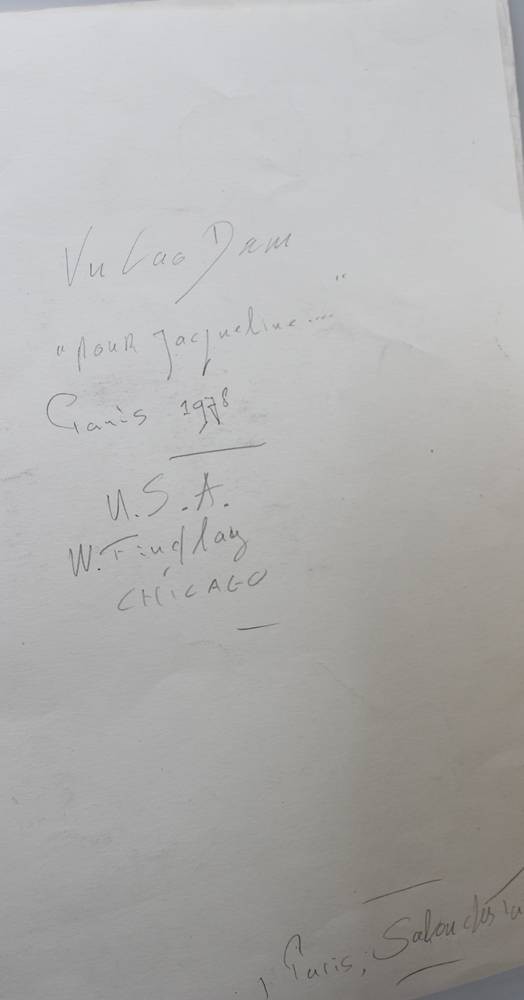 Vu Cao Dam
"pour Jacqueline...."
Paris 1978
U.S.A.
W. Findlay
CHICAGO
, Paris, Salon des